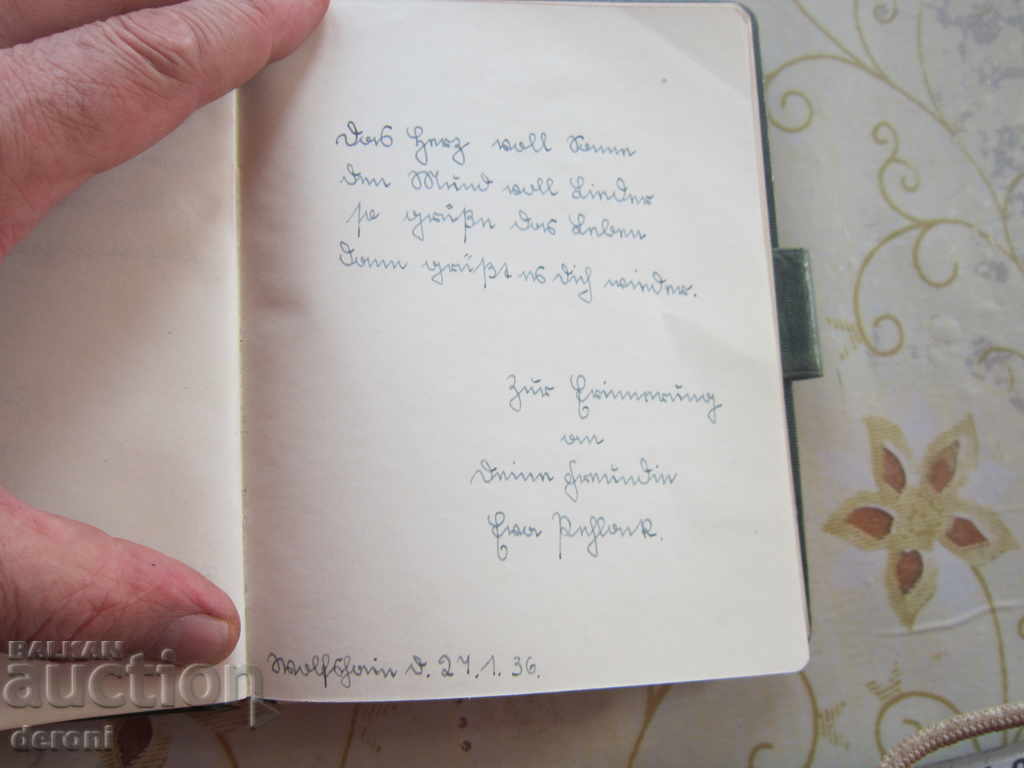 Das Herz voll Sonne
den Mund voll Lieder
so grüße das Leben
Dann grüßt es dich wieder.
Zur Erinnerung
an
Deine Freundin
Eva
Wolfshain d. 27.1.36.
BALKAN
auction
deroni